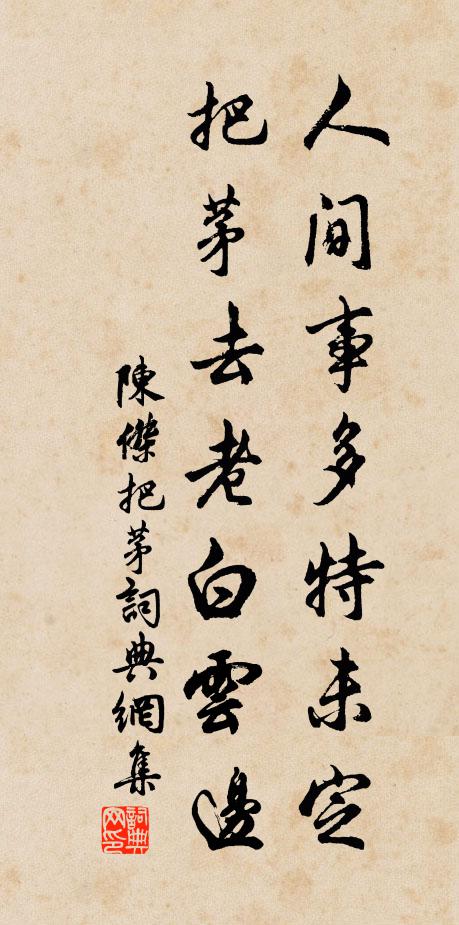 人間事多特未定
把茅去老白雲邊
陳傑把茅詞典網集
詞典網印